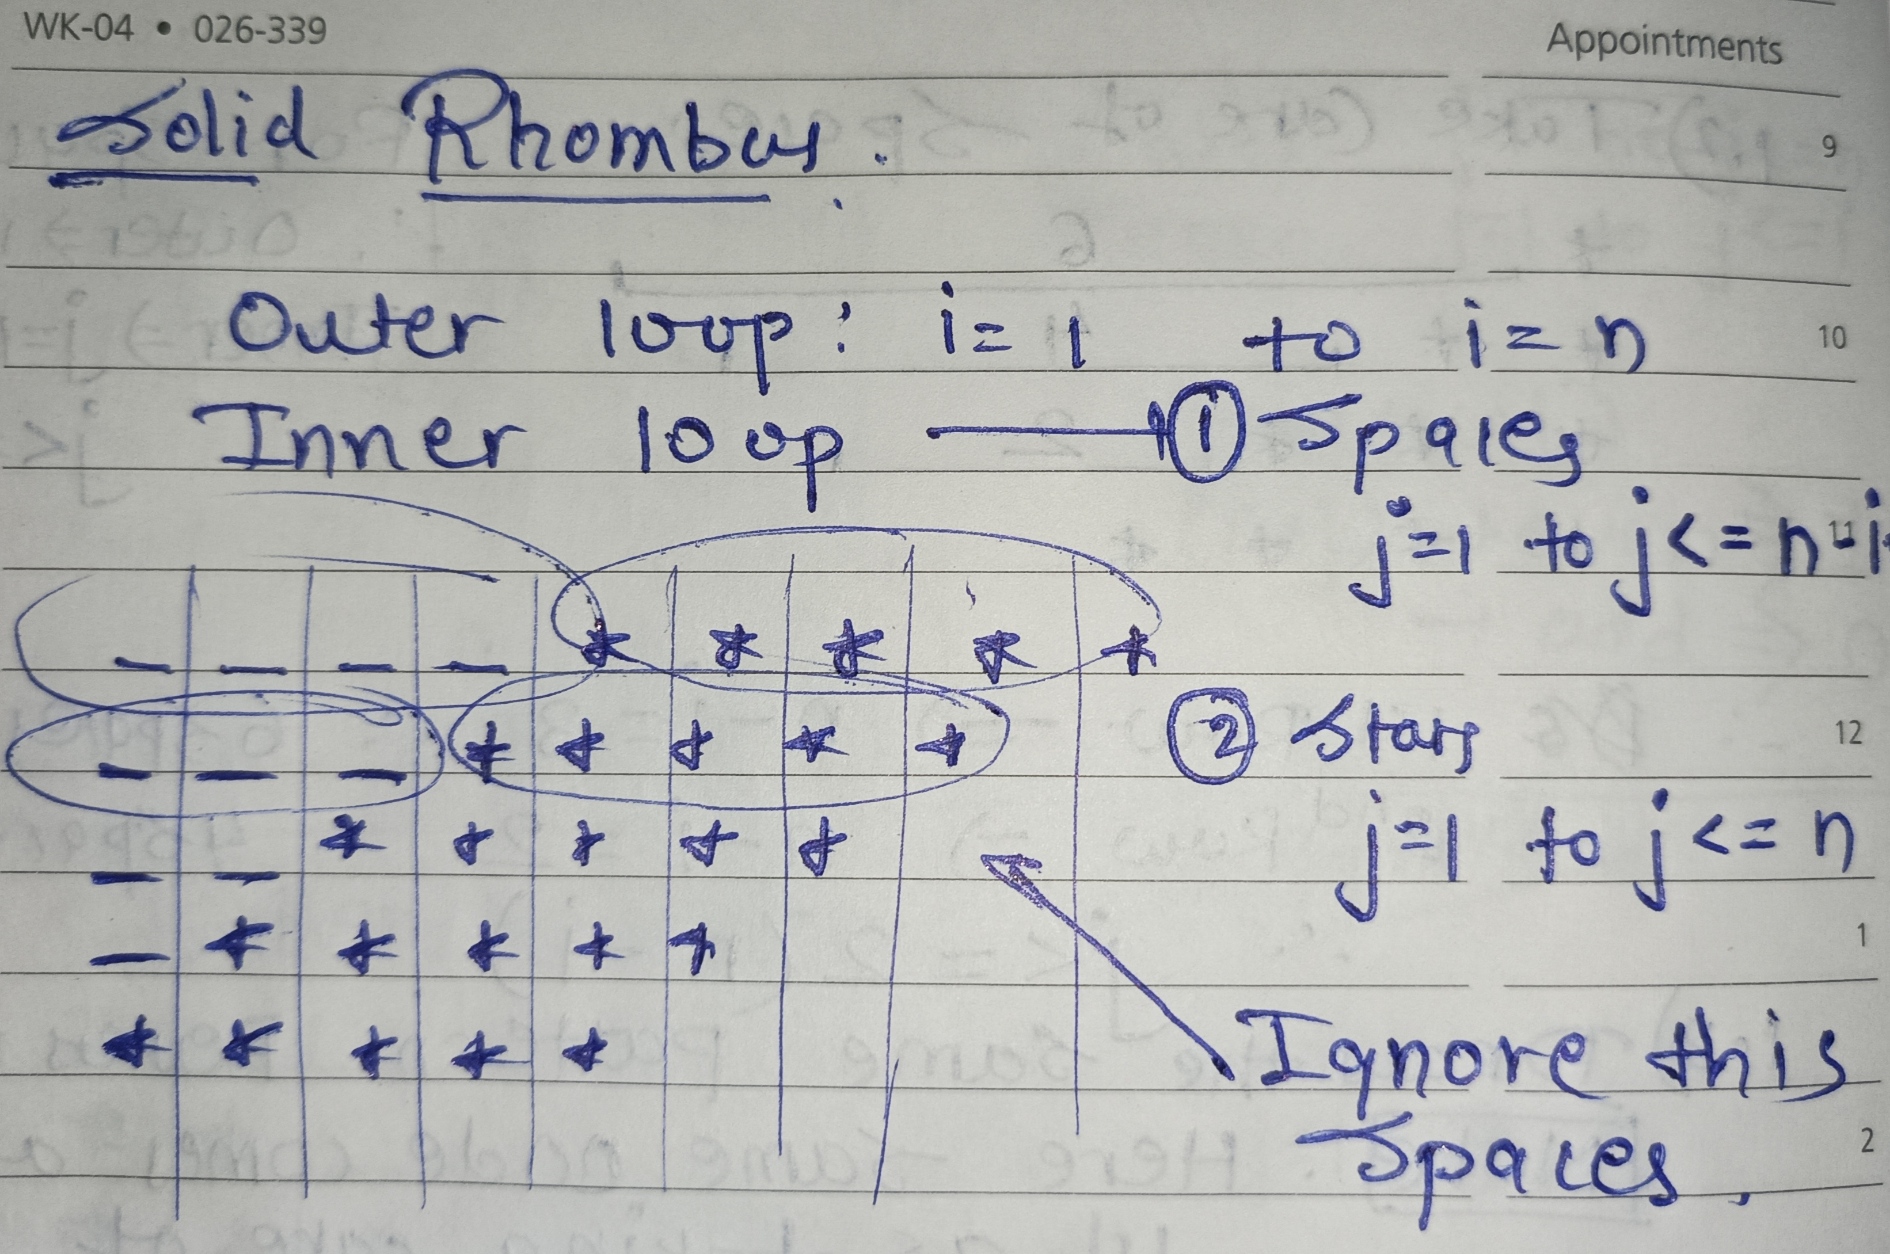 WK-04 • 026-339
Appointments
Solid Rhombus.
9
Outer loop: i= 1 to i = n
10
Inner loop → ① Spaces
j=1 to j<=n-i
11
_ _ _ _ * * * * *
_ _ _ * * * * *
② Stars
12
_ _ * * * * *
j=1 to j<=n
_ * * * * *
1
* * * * *
Ignore this
Spaces.
2